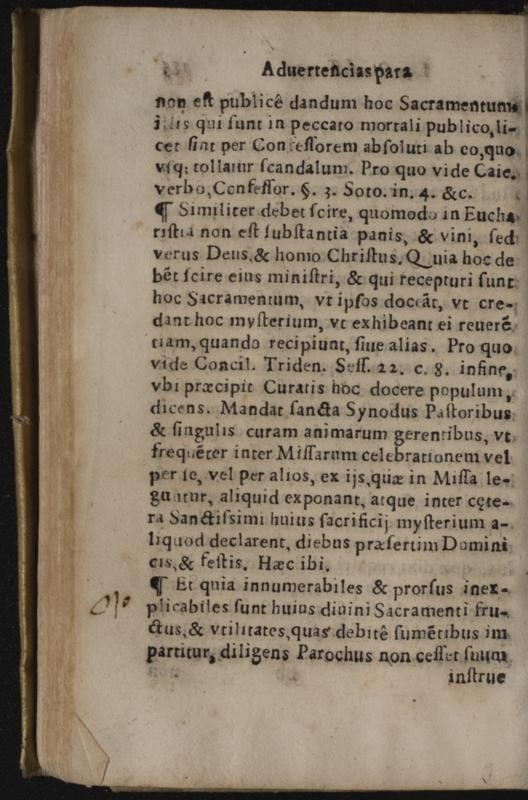 Aduertencias para
non est publicê dandum hoc Sacramentum
illis qui sunt in peccato mortali publico, li-
cet sint per Confessorem absoluti ab eo, quo
vsq; tollatur scandalum. Pro quo vide Caie.
verbo, Confessor. §. 3. Soto. in. 4. &c.
¶ Similiter debet scire, quomodo in Eucha
ristia non est substantia panis, & vini, sed
verus Deus, & homo Christus. Quia hoc de
bẽt scire eius ministri, & qui recepturi sunt
hoc Sacramentum, vt ipsos doceãt, vt cre-
dant hoc mysterium, vt exhibeant ei reuerẽ
tiam, quando recipiunt, siue alias. Pro quo
vide Concil. Triden. Sess. 22. c. 8. in fine,
vbi præcipit Curatis hoc docere populum,
dicens. Mandat sancta Synodus Pastoribus
& singulis curam animarum gerentibus, vt
frequẽter inter Missarum celebrationem vel
per se, vel per alios, ex ijs, quæ in Missa le-
guntur, aliquid exponant, atque inter cęte-
ra Sanctissimi huius sacrificij mysterium a-
liquod declarent, diebus præsertim Domini
cis, & festis. Hæc ibi.
¶ Et quia innumerabiles & prorsus inex-
plicabiles sunt huius diuini Sacramenti fru-
ctus, & vtilitates, quas debitê sumẽtibus im
partitur, diligens Parochus non cesset suum
instrue